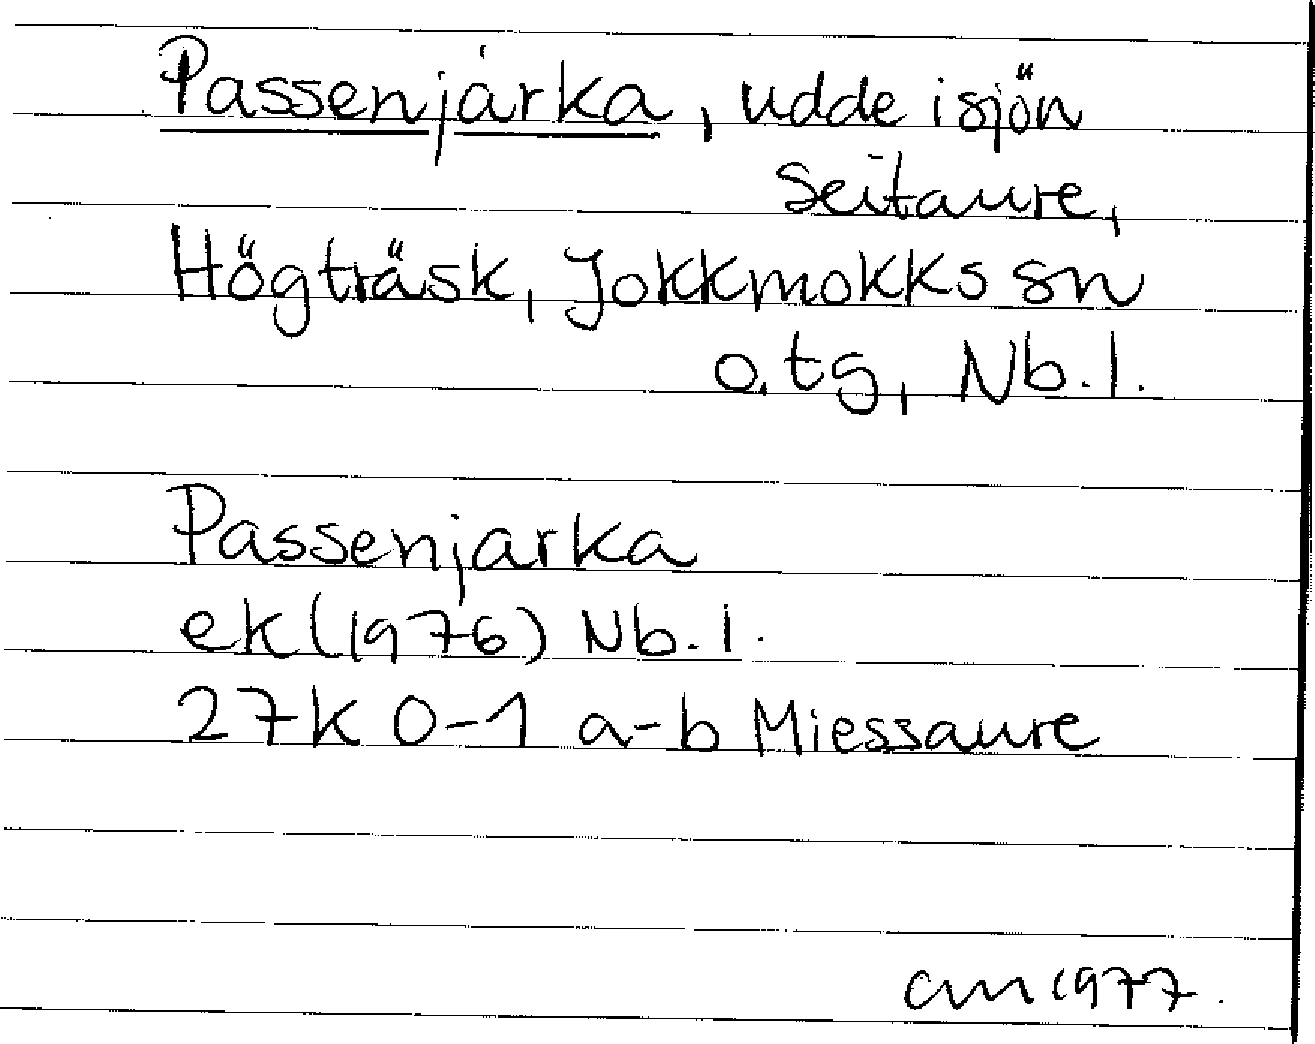 Passenjårka, udde i sjön
Seitaure,
Högträsk, Jokkmokks sn
o. tg, Nb. l.
Passenjarka
ek (1976) Nb. l.
27K 0-1 a-b Miessaure
cm 1977.